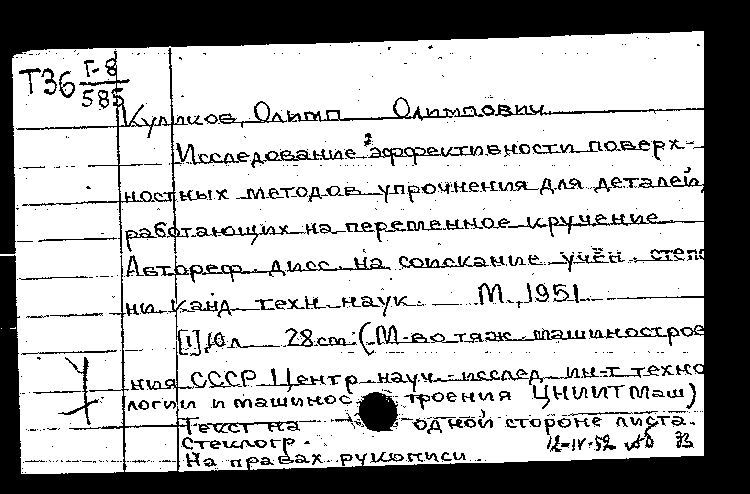 Т36 Г-8
585
Куликов, Олимп Олимпович
Исследование эффективности поверх-
ностных методов упрочнения для деталей,
работающих на переменное кручение
Автореф. дисс. на соискание учён. степе
ни канд техн наук. М., 1951
[1], 10 л 28 см (М-во тяж. машинострое
ния СССР Центр. науч.-исслед. ин-т техно
логии и машинос троения ЦНИИТМаш)
Текст на одной стороне листа.
Стеклогр. 12-IV-52
На правах рукописи.